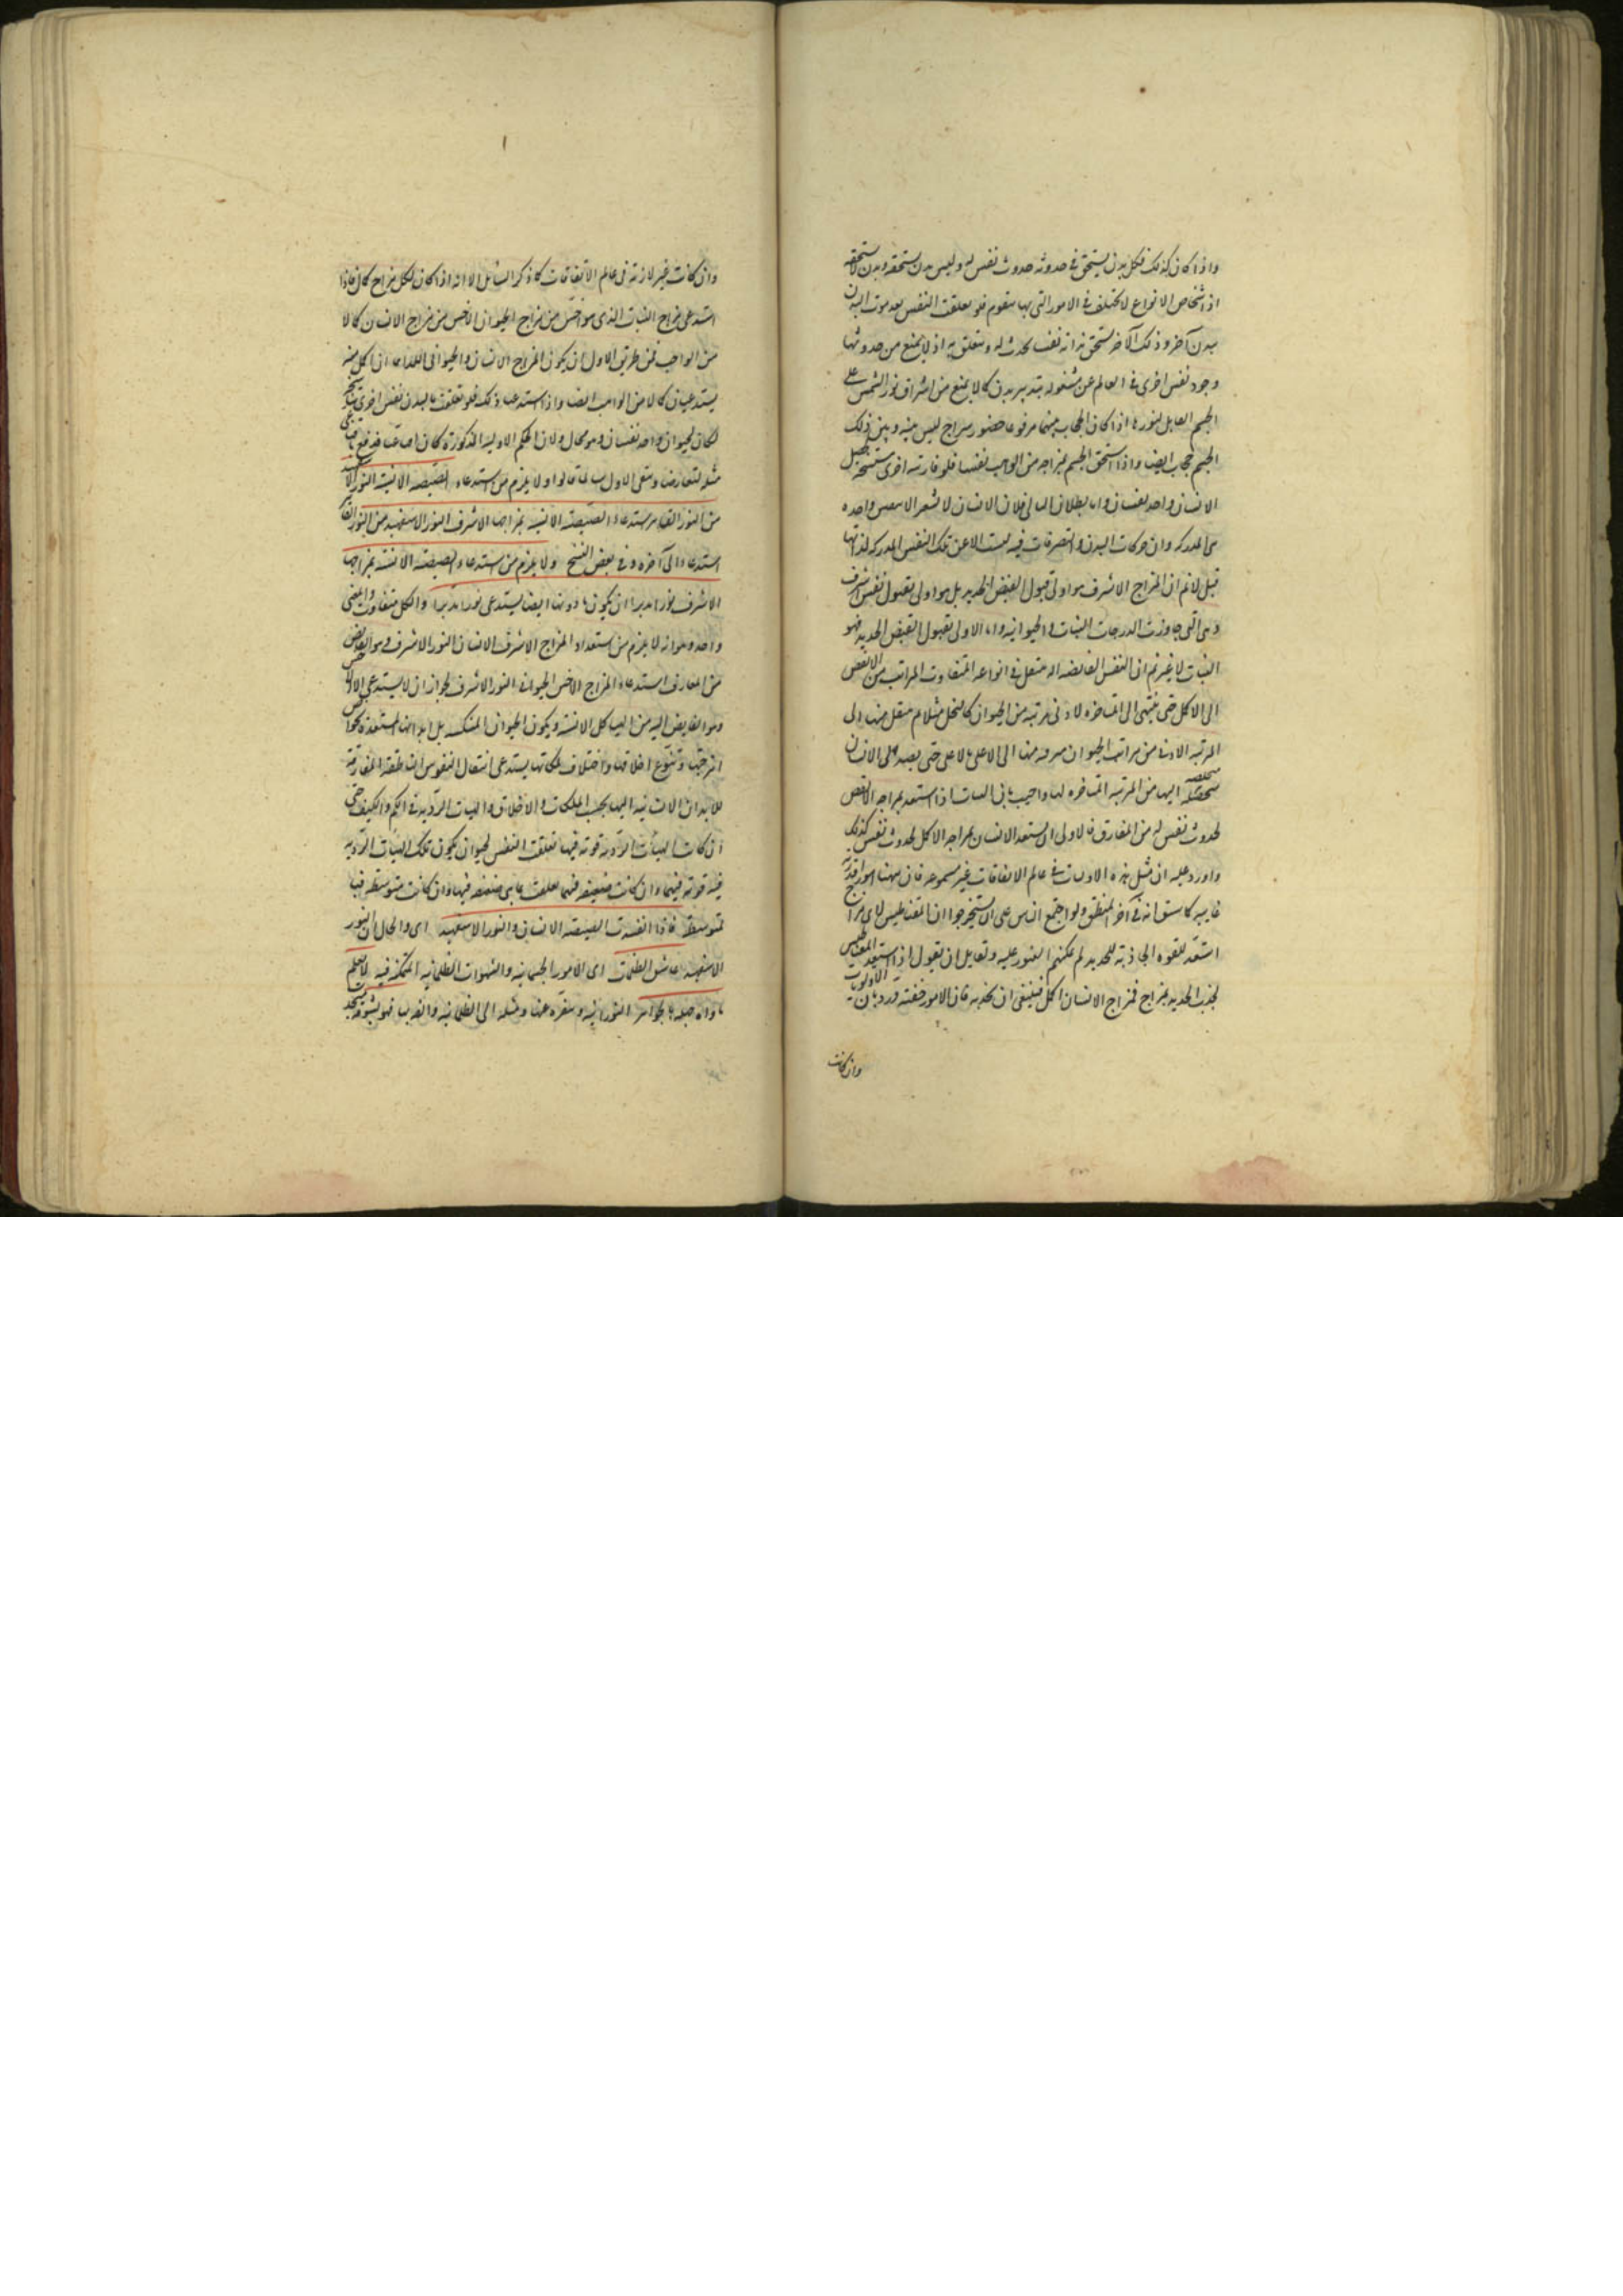 واذا كان كذلك فكل بدن يستحق فى حدوثه حدوث نفس له وليس بدن يستحقه وبدن لا يستحقه
اذ اشخاص الانواع لا تختلف فى الامور التى بها يتقوم فلو تعلقت النفس بعد موت البدن
ببدن آخر وذلك الآخر يستحق لذاته نفسا تحدث له وتتعلق به اذ لا يمنع من حدوثها
وجود نفس اخرى فى العالم عن مشغوله بتدبير بدن كما لا يمنع من اشراق نور الشمس على
الجسم القابل لنورها اذا كان الحجاب بينهما مرفوعا حضور سراج ليس بينه وبين ذلك
الجسم حجاب ايضا واذا استحق الجسم بمزاجه من الواهب نفسا فلو قارنته اخرى مستنسخة تحصل
الانسان واحد نفسان واما بطلان التالى فلان الانسان لا يشعر الا بنفس واحده
هى المدركه وان حركات البدن والتصرفات فيه ليست الا عن تلك النفس المدركه لذاتها
قيل لا نم ان المزاج الاشرف هو اولى بقبول الفيض الجديد بل هو اولى بقبول نفس اشرف
وهى التى جاوزت الدرجات النباتيه والحيوانيه واما الاولى بقبول الفيض الجديد فهو
النبات لا غير ثم ان النفس الفايضه اليه تنتقل فى انواعه المتفاوت المراتب من الانقص
الى الاكمل حتى ينتهى الى المتاخره لادنى مرتبه من الحيوان كالنخل مثلا ثم ينتقل منها الى
المرتبه الادنى من مراتب الحيوان مترقيه منها الى الاعلى فالاعلى حتى يصعد الى الانسان
متخلصه اليها من المرتبه المتاخره لها واجيب بان النبات اذا استعد بمزاجه الانقص
لحدوث نفس له من المفارق فالاولى ان يستعد الانسان بمزاجه الاكمل لحدوث نفس كذلك
واورد عليه ان مثل هذه الاولويات فى عالم الاتفاقات غير مسموعه فان ههنا امورا قدرية
غايبه كما سبق انه فى آخر المنطق ولو اجتمع الناس على ان يستخرجوا ان المقناطيس لاى مزاج
استعد للقوه الجاذبة للحديد لم يمكنهم العثور عليه ولقايل ان يقول اذا استعد المقناطيس
لجذب الحديد بمزاج فمزاج الانسان اكمل فينبغى ان يجذبه فان الامور خفيته ورد بان الاولويات
وان كانت
وان كانت غير لازمة فى عالم الاتفاقات كما ذكر السائل الا انه اذا كان لكل مزاج كمال فاذا
استدعى مزاج النبات الذى هو اخس من مزاج الحيوان الاخس من مزاج الانسان كمالا
من الواهب فمن طريق الاول ان يكون المزاج الانسانى والحيوانى اللذان هما اكمل منه
يستدعيان كمالا من الواهب ايضا واذا استدعيا ذلك فلو تعلقت بالبدن نفس اخرى بالتناسخ
لكان لحيوان واحد نفسان وهو محال ولان الحكم الاولية المذكورة كان اقناعيا فدفع باقناعى
مثله لتعارضا وبقى الاول سالما قالوا ولا يلزم من استدعاء الصيصة الانسية النور الاسفهبد
من النور القاهر استدعاء الصيصة الانسية بمزاجها الاشرف النور الاسفهبد من النور القاهر
استدعاء الى آخره وفى بعض النسخ ولا يلزم من استدعاء الصيصة الانسية بمزاجها
الاشرف نورا مدبرا ان يكون ما دونها ايضا يستدعى نورا مدبرا والكل متفاوت والمعنى
واحد وهو انه لا يلزم من استعداد المزاج الاشرف الانسانى النور الاشرف وهو الفايض
من المفارق استدعاء المزاج الاخس الحيوانى النور الاشرف لجواز ان لا يستدعى الاخس
وهو الفايض اليه من الهياكل الانسية ويكون الحيوان المنتكسه بل ابدانها المستعدة نحو
امزجتها وتنوع اخلاقها واختلاف ملكاتها يستدعى انتقال النفوس الناطقة المفارقة
للابدان الانسانيه اليها بحسب الملكات والاخلاق والهيات الرديه فى الكم والكيف حتى
ان كانت الهيئات الردية قوية فيها تعلقت النفس لحيوان يكون تلك الهيئات الردية
فيه قوية فيها وان كانت ضعيفه فيها تعلقت بما هى ضعيفه فيها وان كانت متوسطه فيها
فمتوسطة فاذا انفسدت الصيصة الانسانى والنور الاسفهبد اى والحال ان النور
الاسفهبد عاشق الظلمات اى الامور الجسمانيه والشهوات الظلمانيه المتمكنه فيه لا يعلم
ماواه جهله بالجواهر النورانيه وتنفره عنها وميله الى الظلمانيه والقرب فهو بشوقه ينجذب